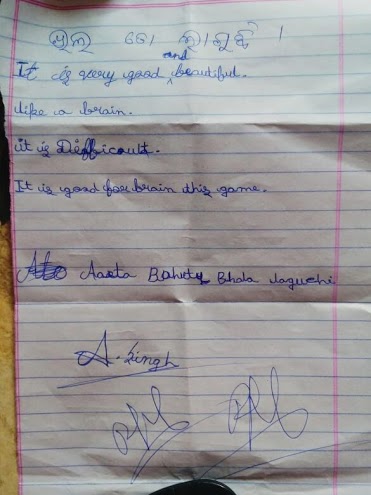 It is very good and beautiful.
like a brain.
it is Difficult.
It is good for brain this game.
Aasta Bahuty Bhala laguchi
A. Singh